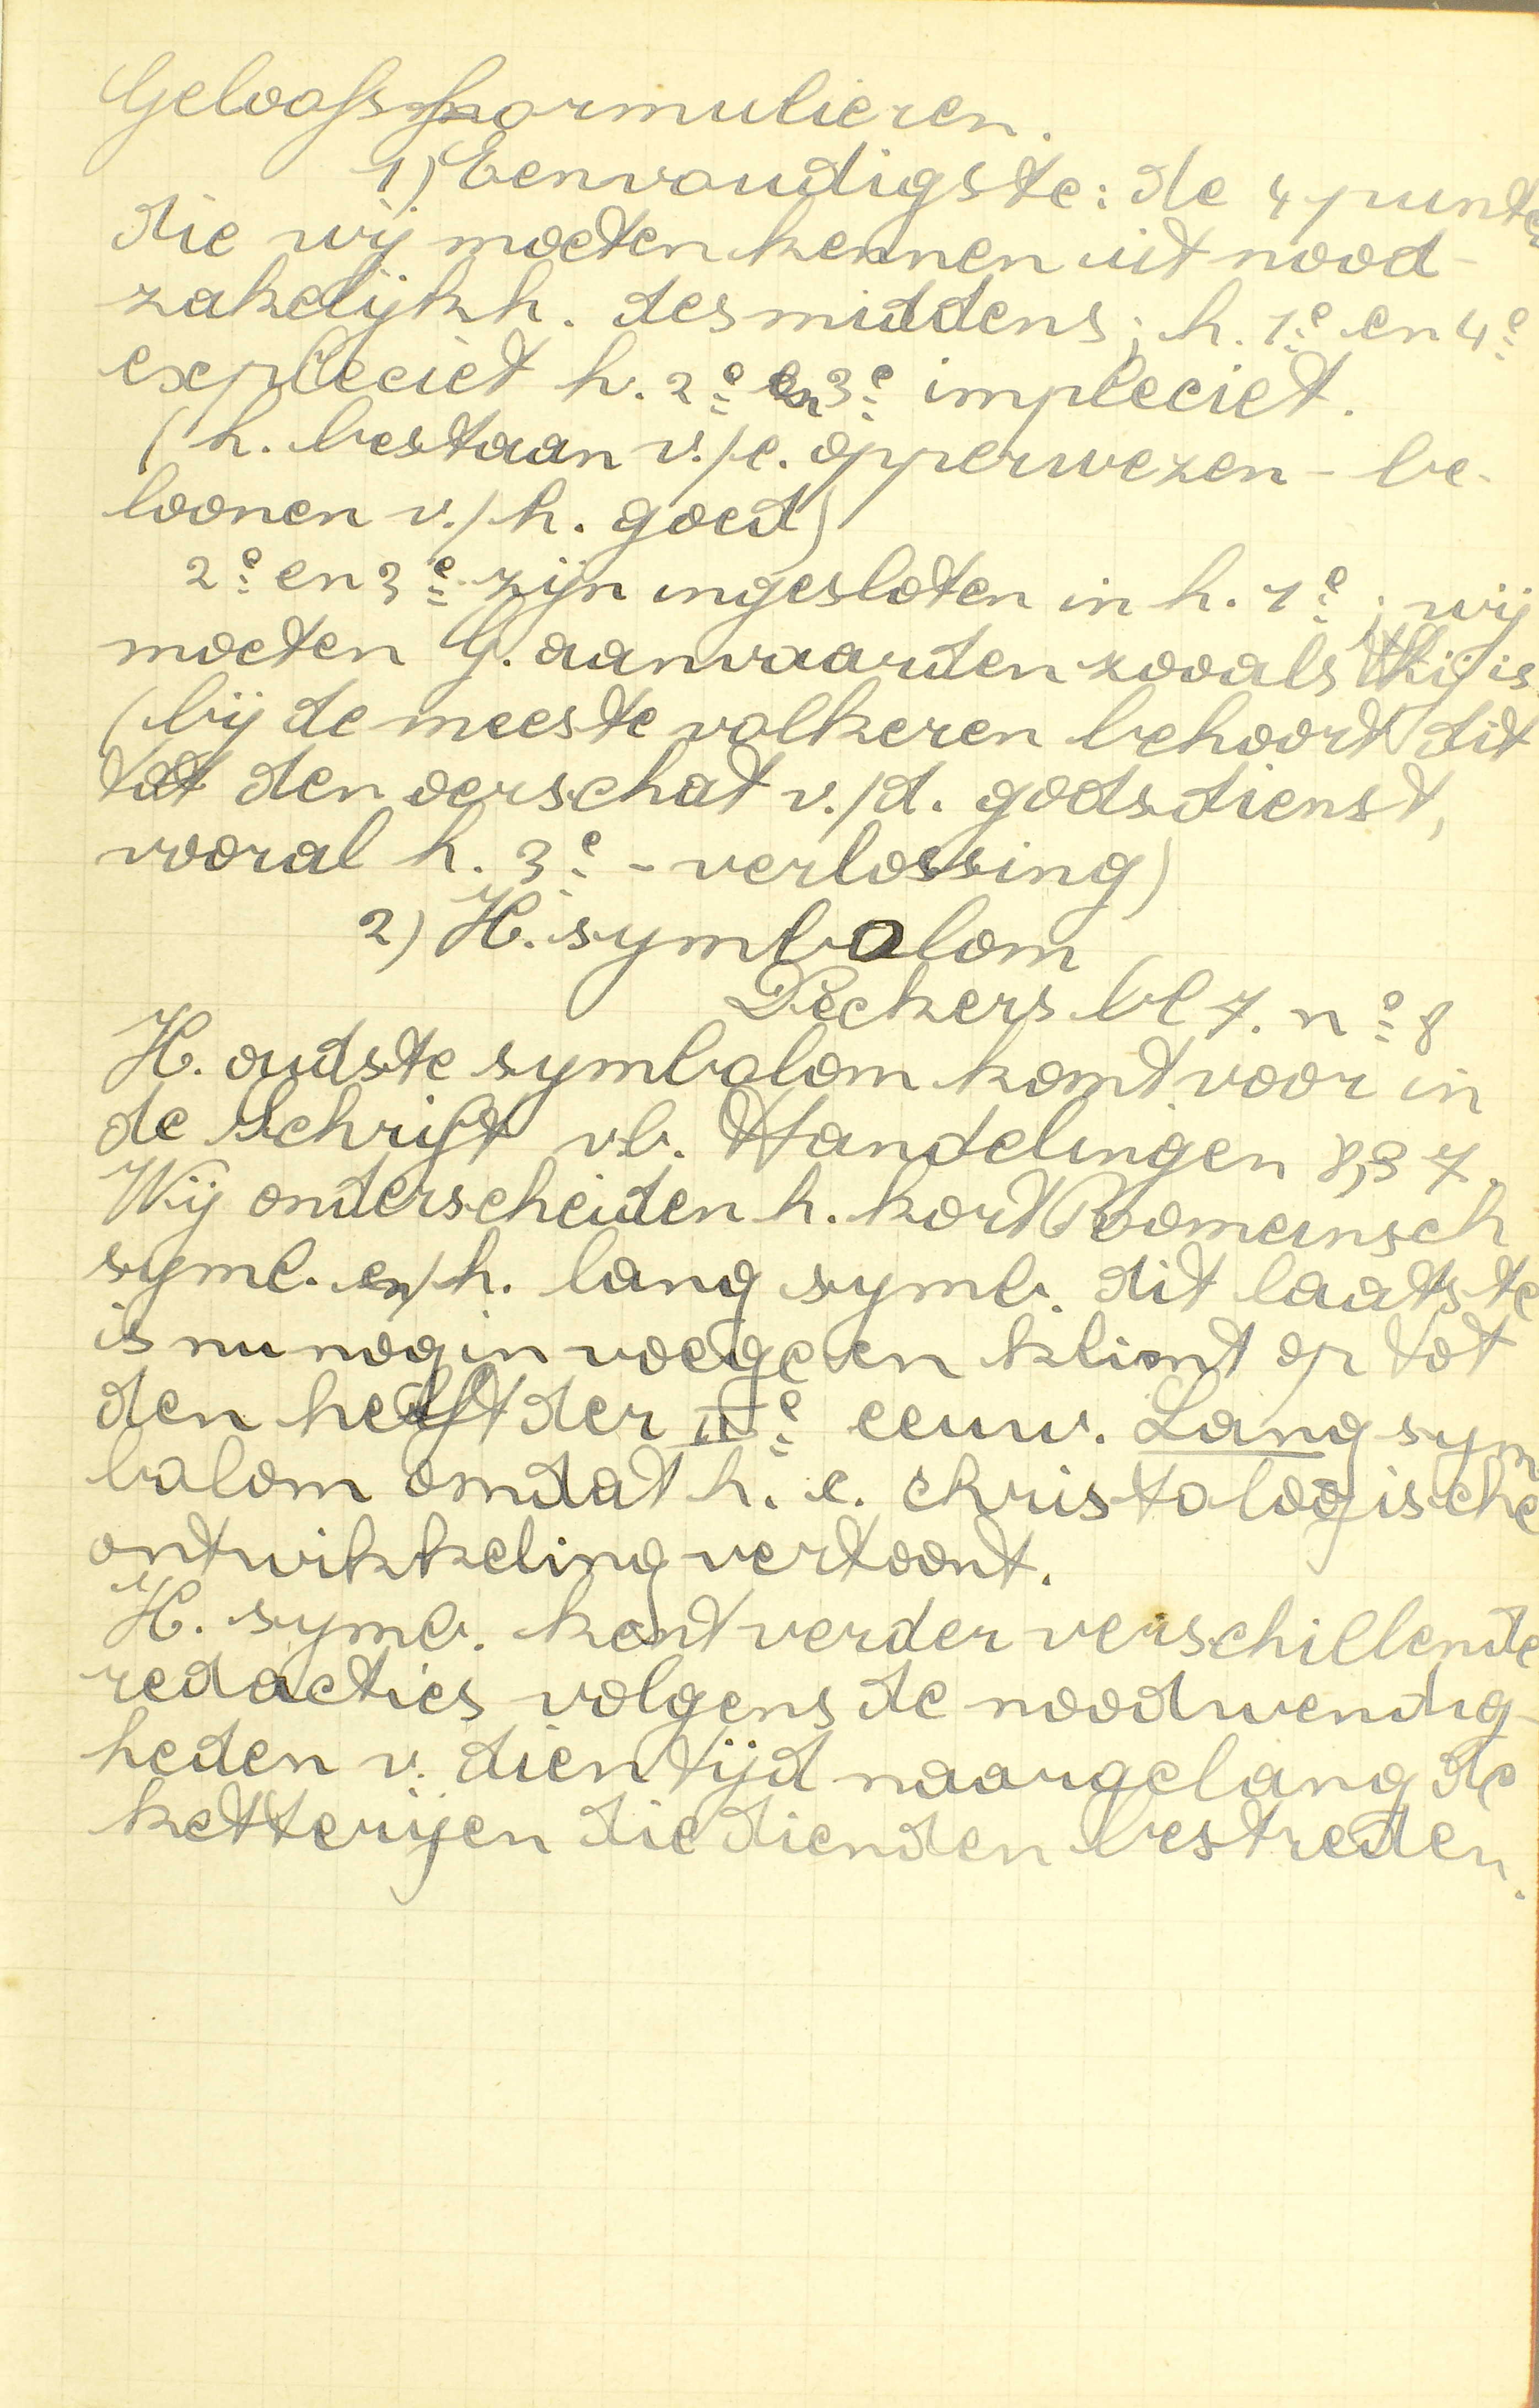 Geloofsformulieren.
1) Eenvoudigste: de 4 punten
die wij moeten kennen uit nood-
zakelijkh. des middens; h. 1e en 4e
expleciet h. 2e en 3e impleciet.
(h. bestaan v./e. opperwezen - be-
loonen v./h. goed)
2e en 3e zijn ingesloten in h. 1e; wij
moeten G. aanvaarden zooals Hij is
(bij de meeste volkeren behoort dit
tot den oerschat v./d. godsdienst,
vooral h. 3e - verlossing)
2) H. symbolom
Deckers bl 7. n° 8
H. oudste symbolom komt voor in
de Schrift vb. Handelingen 8,37.
Wij onderscheiden h. kort Romeinsch
symb. en/h. lang symb. dit laatste
is nu nog in voege en klimt op tot
den helft der IIe eeuw. Lang sym
bolom omdat h. e. christologische
ontwikkeling vertoont.
H. symb. kent verder verschillende
redacties volgens de noodwendig-
heden v. dien tijd naargelang de
ketterijen die dienden bestreden.